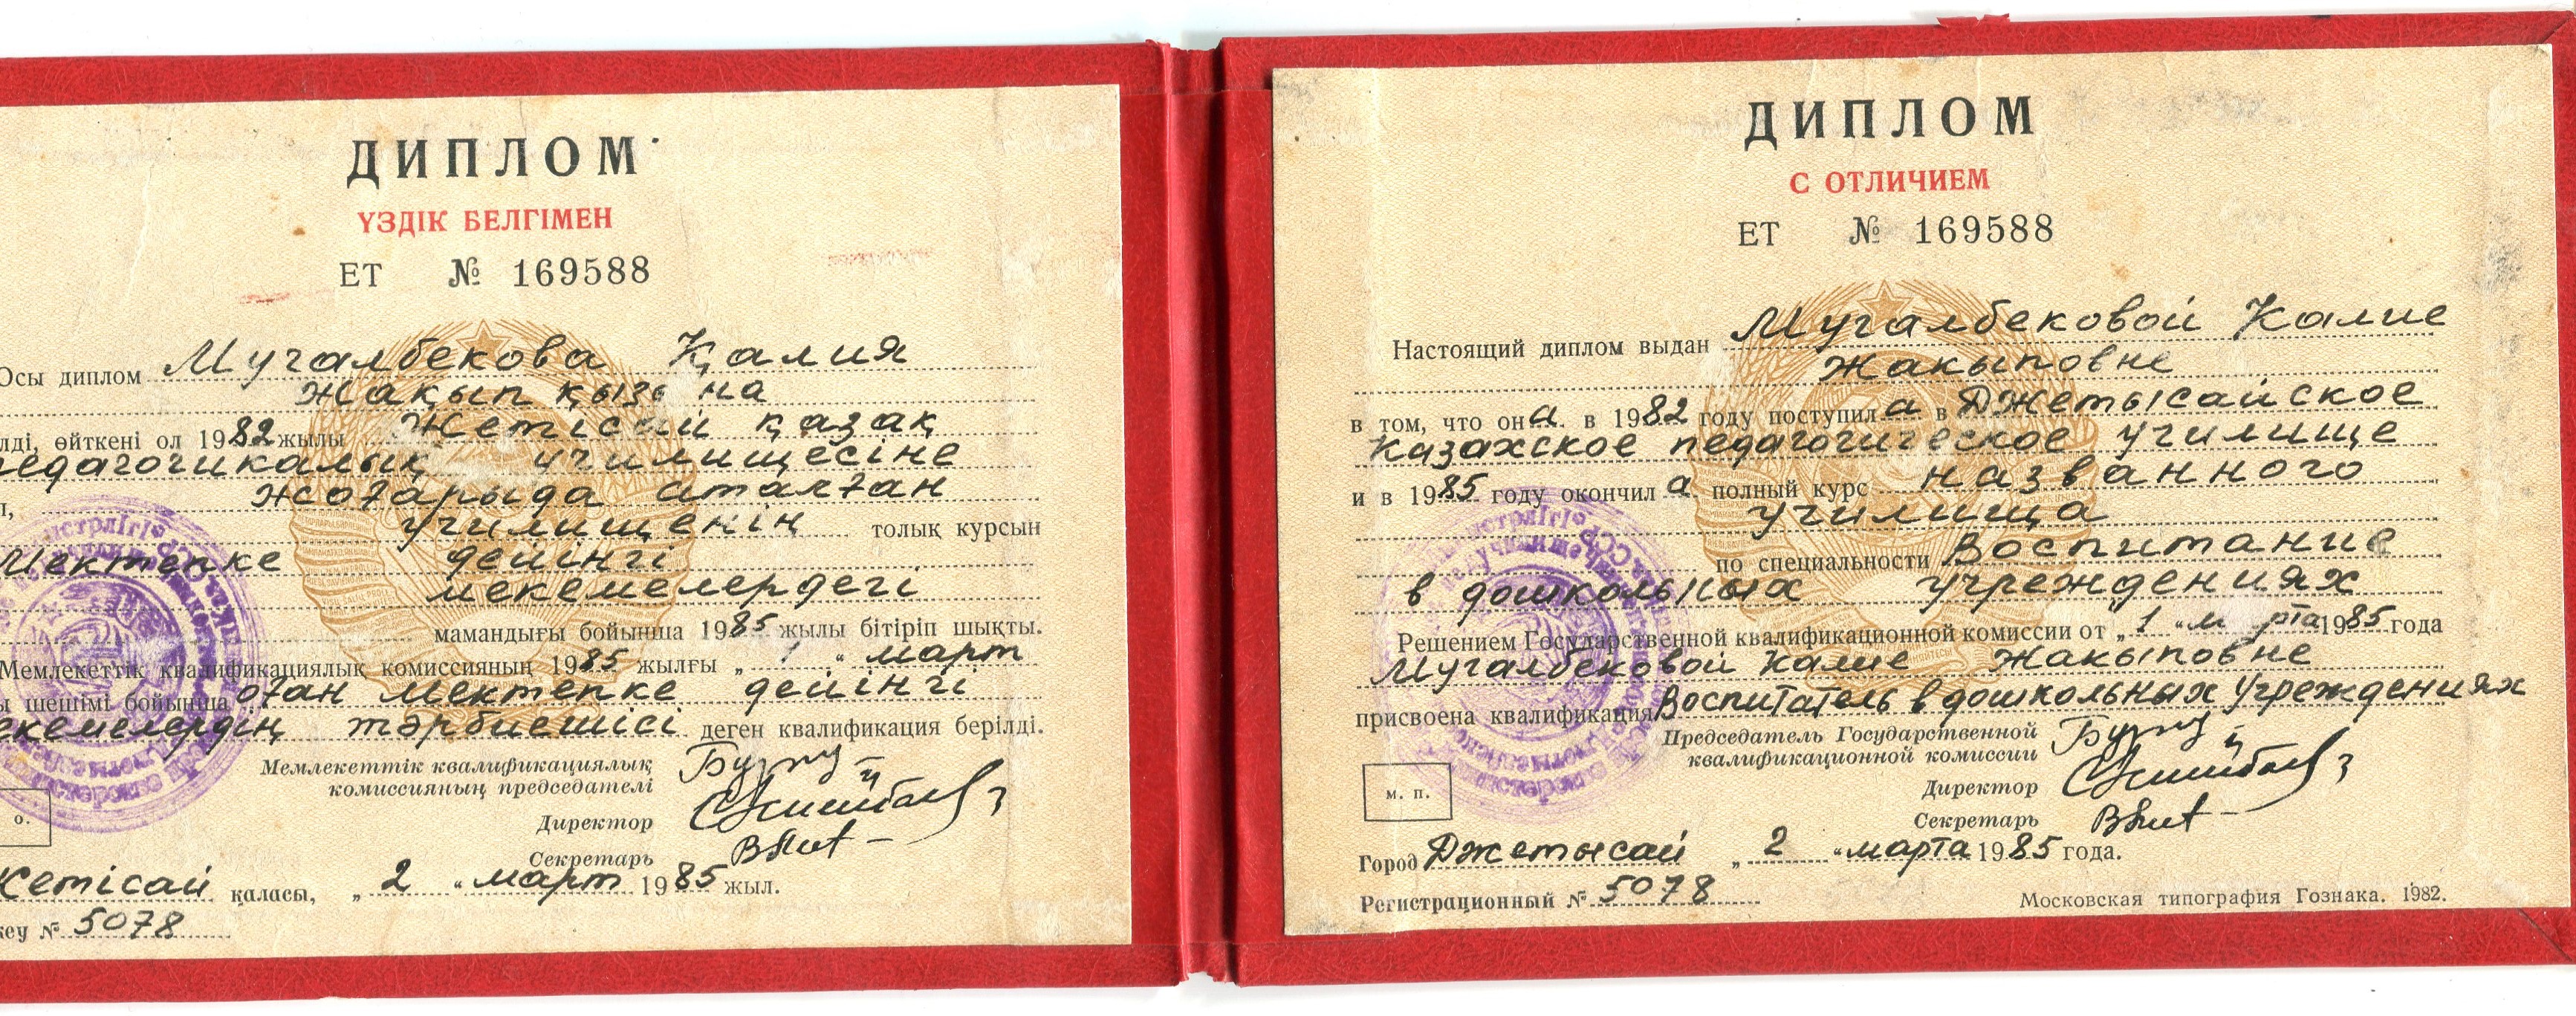 ДИПЛОМ
ҮЗДІК БЕЛГІМЕН
ЕТ № 169588
Осы диплом Мугалбекова Қалия
Жақып қызы на
лді, өйткені ол 1982 жылы Жетісай қазақ
педагогикалық училищесіне
п, жоғарыда аталған
училищенің толық курсын
Мектепке дейінгі
мекемелердегі
мамандығы бойынша 1985 жылы бітіріп шықты.
Мемлекеттік квалификациялық комиссияның 1985 жылғы „ 1 “ март
ы шешімі бойынша оған мектепке дейінгі
екемелердің тәрбиешісі деген квалификация берілді.
Мемлекеттік квалификациялық
комиссияның председателі
Директор
Секретарь
о.
Жетісай қаласы, „ 2 “ март 1985 жыл.
кеу № 5078
ДИПЛОМ
С ОТЛИЧИЕМ
ЕТ № 169588
Настоящий диплом выдан Мугалбековой Калие
Жакыповне
в том, что она в 1982 году поступила в Джетысайское
Казахское педагогическое училище
и в 1985 году окончила полный курс названного
училища
по специальности Воспитание
в дошкольных учреждениях
Решением Государственной квалификационной комиссии от „ 1 “ марта 1985 года
Мугалбековой Калие Жакыповне
присвоена квалификация Воспитатель в дошкольных учреждениях
Председатель Государственной
квалификационной комиссии
Директор
Секретарь
м. п.
Город Джетысай „ 2 “ марта 1985 года.
Регистрационный № 5078
Московская типография Гознака. 1982.